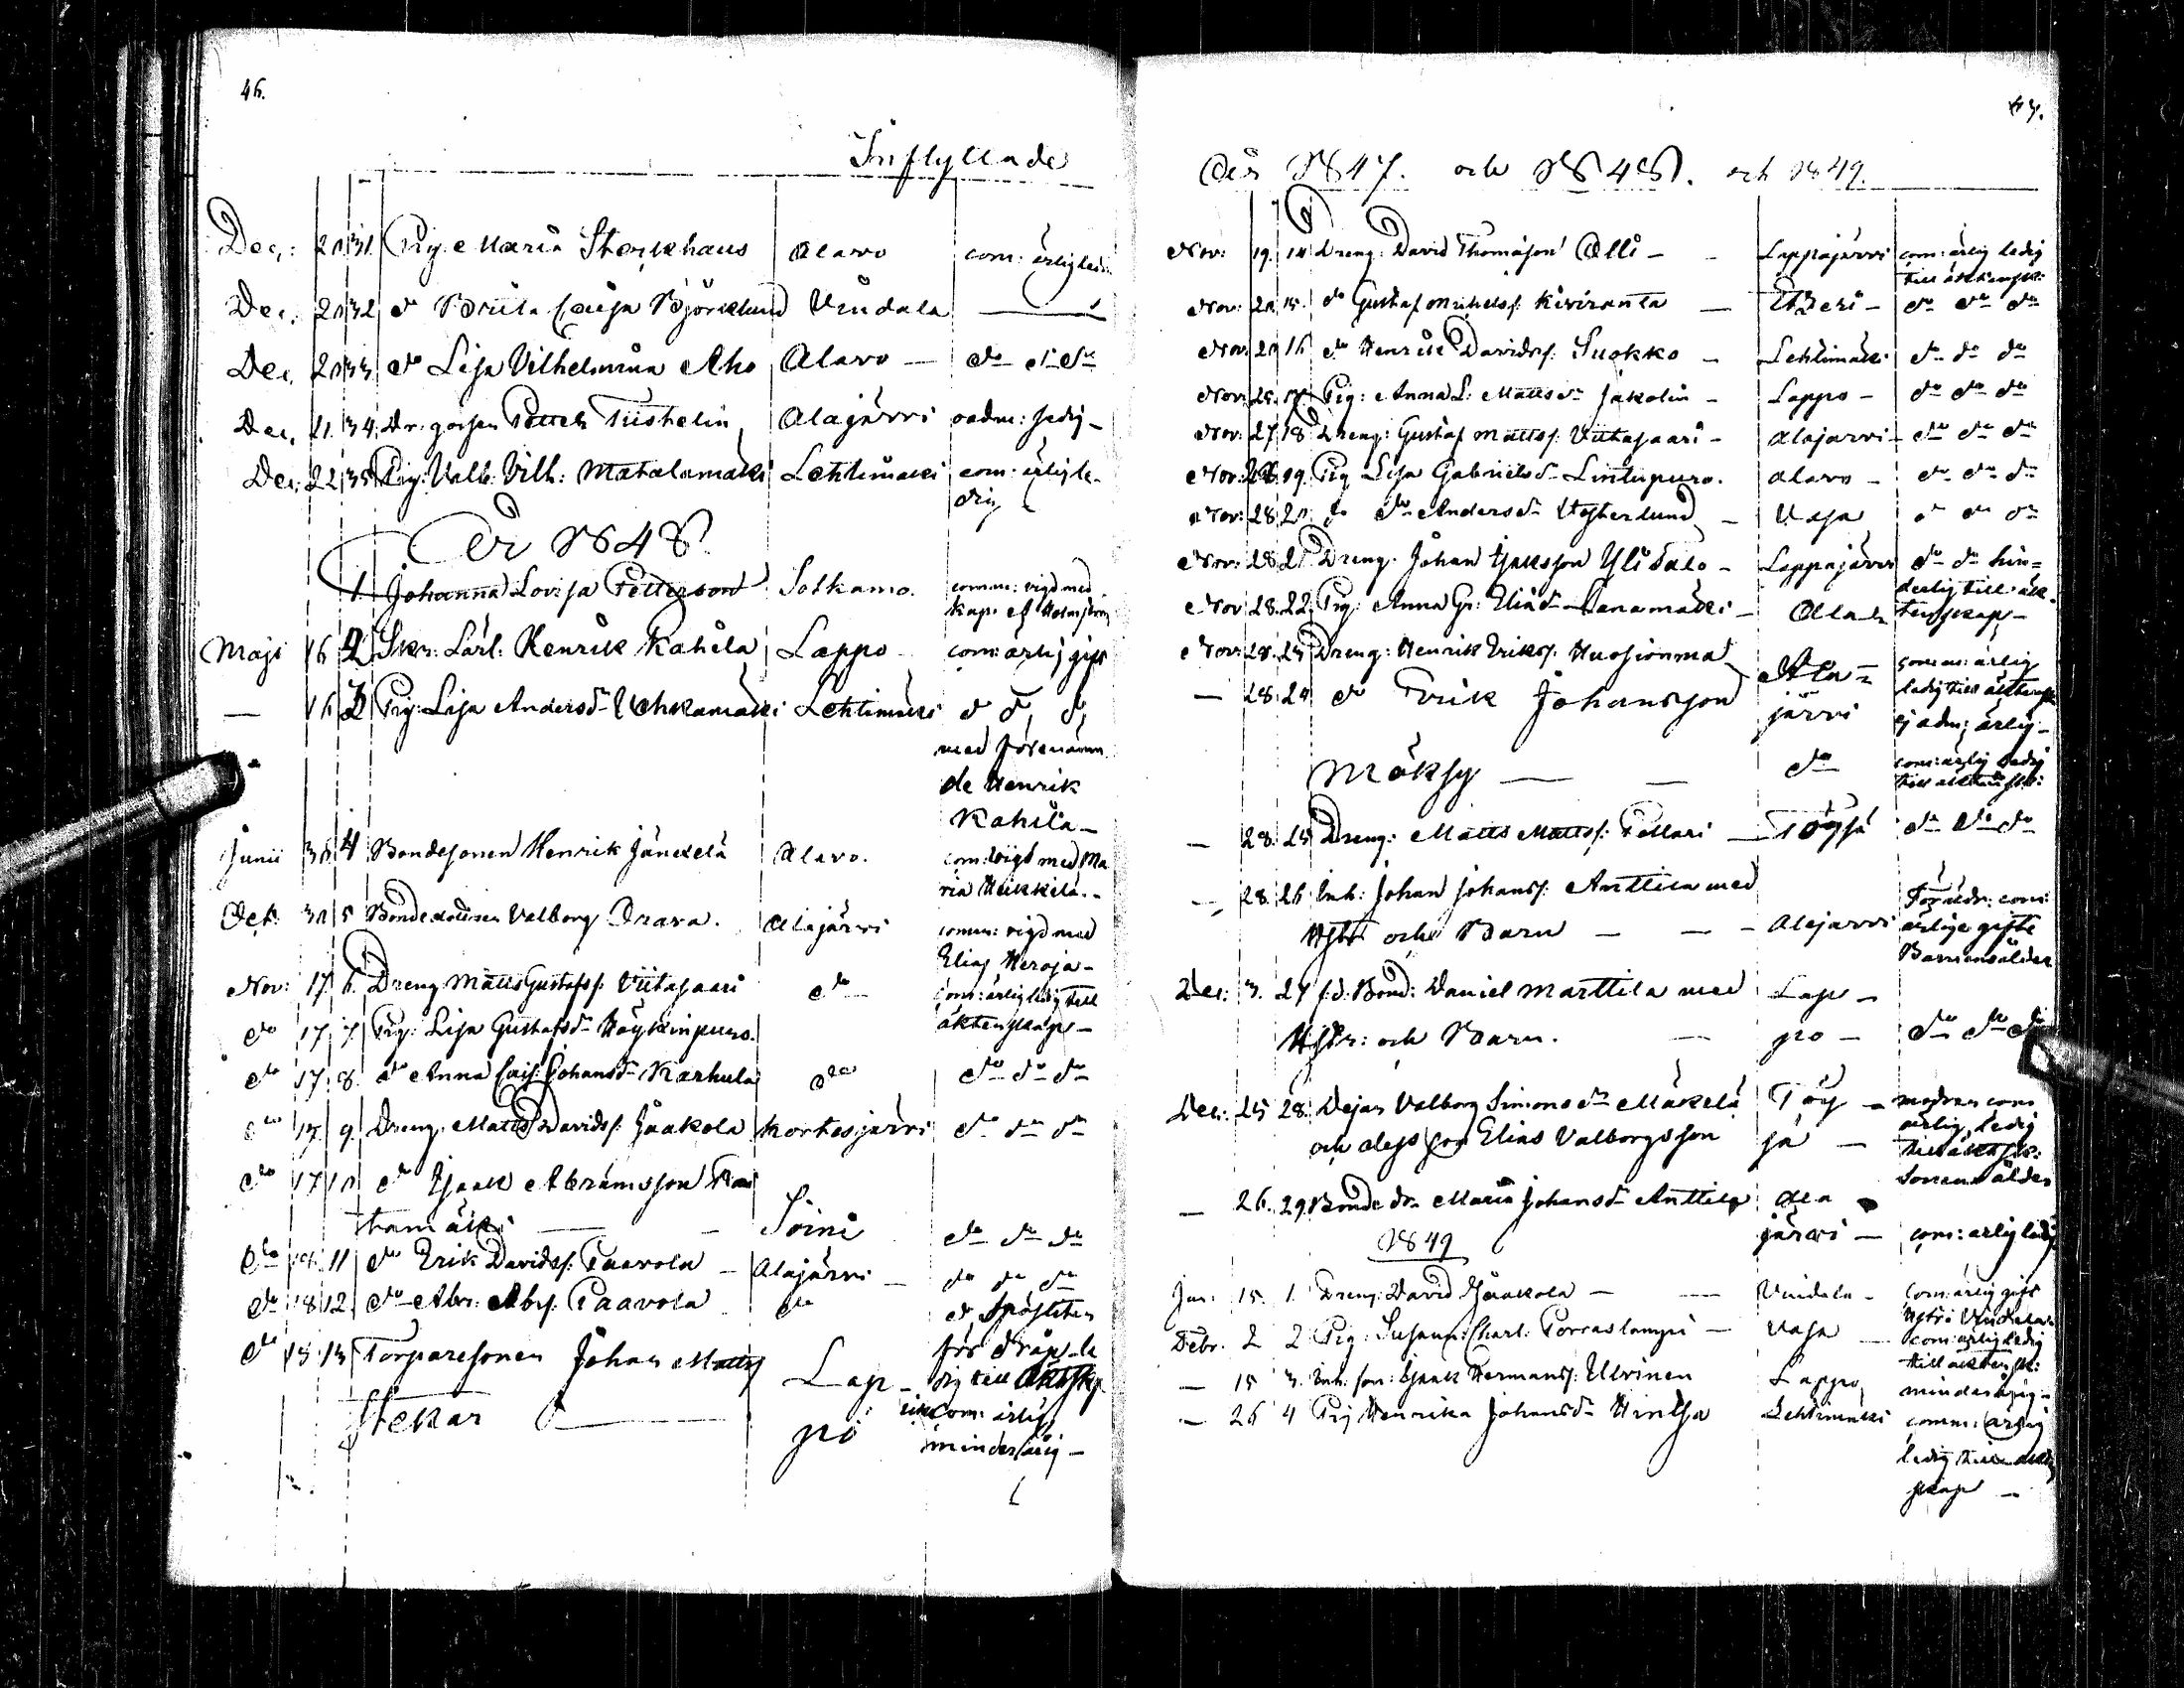 46.
Inflyttade
Dec: 20 31. Pig. Maria Storkhaus Alavo com: ärlig ledi
Dec. 20 32 do Brita Caisa Björklund Vindala —
Dec. 20 33 do Lisa Vilhelmina Aho Alavo — do do do
Dec. 21. 34. Dr. gossen Petter Alajärvi oadm: ledig —
Dec: 22 35 Pig: Valb: Vilh: Matalamäki Lehtimäki com: ärlig le-
dig
År 1848
1. Johanna Lovisa Petterson Sotkamo. comm: vigd med
Kap.
Maji 16 2 Skr: Lärl: Henrik Kahila Lappo com: ärlig gift
— 16 3 Pig: Lisa Andersdr Uhkamäki Lehtimäki do do do
med förenämn-
de Henrik
Kahila —
Junii 30 4 Bondesonen Henrik Jänckelä Alavo. com: vigd med Ma
ria Heikkilä. —
Oct: 30 5 Bondedottren Valborg Alajärvi comm: vigd med
Elias Heroja —
Nov: 17. 6. Dreng Matts Gustafss: Viitasaari do com: ärlig ledig till
äktenskap —
do 17. 7. Pig: Lisa Gustafsdr Höykinpuro.
do 17. 8. do Anna Cais: Johansdr Karhula do do do do
do 17. 9. Dreng. Matts Davidss: Jaakola Kortesjärvi do do do
do 17 10 do Isaak Abramsson
tamäki — Soini do do do
do 18. 11 do Erik Davidss: Paavola — Alajärvi — do do do
do 18 12. do Abr: Abrs: Paavola do
för dråp le
dig till äktskp
do 13 Torparesonen Johan Matts
Lap —
po
com: ärlig
minderårig —
47.
År 1847. och 1848. och 1849.
Nov: 19. 14 Dreng: David Thomasson Olli — Lappajärvi com: ärlig ledig
till äktenskp:
Nov: 20. 15. do Gustaf Michelss: Kiviranta — Etzeri — do do do
Nov: 20 16 do Henrik Davidss: Suokko — Lehtimäki do do do
Nov: 25. 17. Pig: Anna L: Mattsdr Jakolin — Lappo — do do do
Nov: 27 18 Dreng: Gustaf Mattss: Viitasaari — Alajärvi — do do do
Nov: 19. Pig Lisa Gabrielsdr Lintupuro. Alavo — do do do
Nov: 28 20. do do Andersdr Westerlund — Vasa do do do
Nov: 28 21 Dreng. Johan Isaksson Ylisalo — Lappajärvi do do hin=
derlig till äk-
Nov 28. 22. Pig: Anna Gr: Eliædr Lanamäki — Ala do tenskap —
Nov: 28. 23 Dreng: Henrik Erikss: Huosionmaa Ala= comm: ärlig
ledig till äktensk
— 28. 24 do Erik Johansson järvi ej adm: ärlig —
Möksy — — do com: ärlig ledig
till äktenskp:
— 28. 25 Dreng: Matts Mattss: Pollari — Töysä do do do
— 28. 26 Inh: Johan Johanss: Anttila med Föräldr: com:
Hstr och Barn — — Alajärvi ärlige gifte
Barnens ålder
Dec: 3. 27 f:d. Bond: Daniel Marttila med Lap —
Hstr: och Barn. — po — do do do
Dec: 25 28. Dejan Valborg Simonsdr Mäkelä Töy — modren com
ärlig, ledig
och dess son Elias Valborgsson sä — till äktskp:
Sonens ålder
— 26. 29. Bonde dr Maria Johansdr Anttila Ala
järvi — com: ärlig ledig
1849
Jan: 15. 1. Dreng: David Jaakola — — Vindala — Com: ärlig gift
Hstr i Vindala
Febr. 2 2 Pig: Susann: Charl: Porraslampi — Vasa — com: ärlig ledig
till äktensk:
— 15 3. Inh: son: Isaak Hermanss: Ulvinen Lappo minderårig —
— 26 4 Pig Henrika Johansdr Hintsa Lehtimäki comm: ärlig
ledig till äkten
skap —